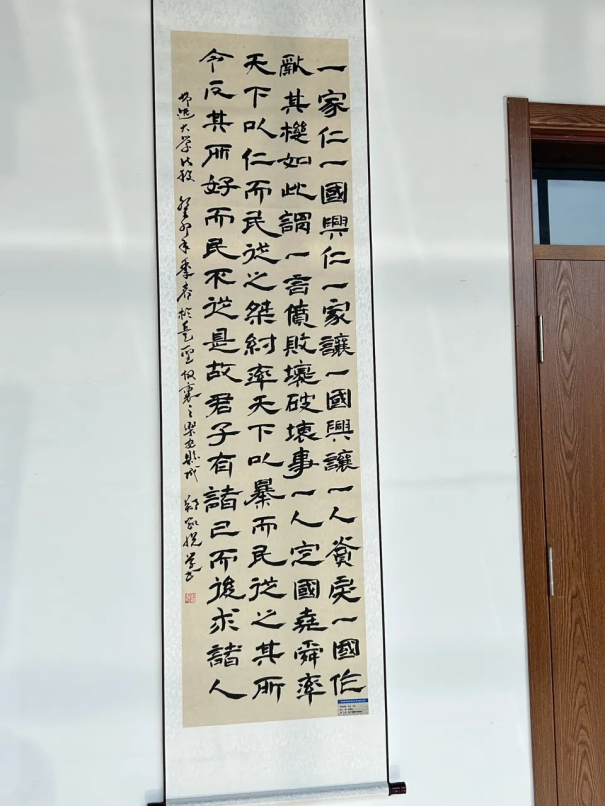 一家仁一國興仁一家讓一國興讓一人貪戾一國作
亂其機如此謂一言僨敗壞破壊事一人定國堯舜率
天下以仁而民從之桀紂率天下以暴而民從之其所
令反其所好而民不從是故君子有諸己而後求諸人
节选大学 癸卯年季春於